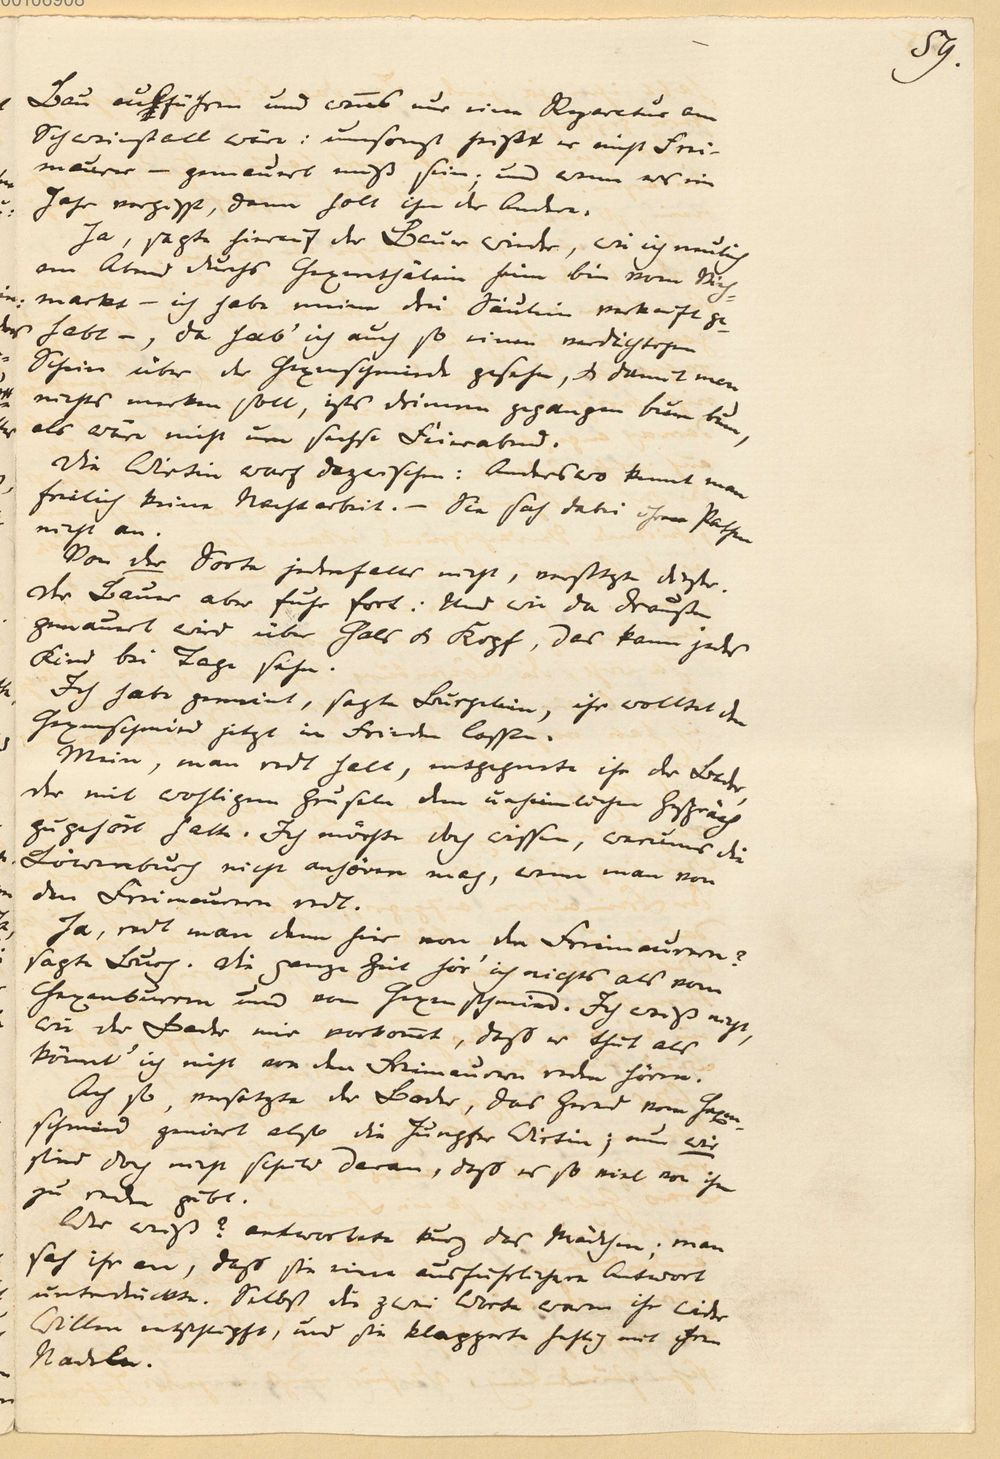 59.
Bau aufführen und wenns nur eine Reparatur am
Schweinstall wäre: umsonst heißt er nicht Frei-
maurer — gemauert muß sein; und wenn ers im
Jahr vergißt, dann holt ihn der Andere.
Ja, sagte hierauf der Bauer wieder, wie ich neulich
am Abend durchs Hexenthälein heim bin vom Vieh-
markt — ich habe meine drei Säulein verkauft ge-
habt —, da hab' ich auch so einen verdächtigen
Schein über der Hexenschmiede gesehn, & damit man
nichts merken soll, ists drinnen gegangen bum bum,
als wäre nicht um sechse Feierabend.
Die Wirtin warf dazwischen: Anderswo kennt man
freilich keine Nachtarbeit. — Sie sah dabei ihren Pathen
nicht an.
Von der Sorte jedenfalls nicht, versetzte dieser.
Der Bauer aber fuhr fort: Und wie da draußen
gemauert wird über Hals & Kopf, das kann jedes
Kind bei Tage sehn.
Ich habe gemeint, sagte Burgelein, ihr wolltet den
Hexenschmied jetzt in Frieden lassen.
Mein, man redt halt, entgegnete ihr der Bader,
der mit wohligem Gruseln dem unheimlichen Gespräch
zugehört hatte. Ich möchte doch wissen, warums die
Löwenburg nicht anhören mag, wenn man von
den Freimaurern redt.
Ja, redt man denn hier von den Freimaurern?
sagte Burg. Die ganze Zeit hör' ich nichts als vom
Hexenbrunnen und vom Hexenschmied. Ich weiß nicht,
wie der Bader mir vorkommt, daß er thut als
könnt' ich nicht von den Freimaurern reden hören.
Ach so, versetzte der Bader, das Gered vom Hexen-
schmied geniert also die Jungfer Wirtin; nun wir
sind doch nicht schuld daran, daß es so viel von ihm
zu reden gibt.
Wer weiß? antwortete kurz das Mädchen; man
sah ihr an, daß sie eine ausführlichere Antwort
unterdrückte. Selbst die zwei Worte waren ihr wider
Willen entschlüpft, und sie klapperte heftig mit ihren
Nadeln.